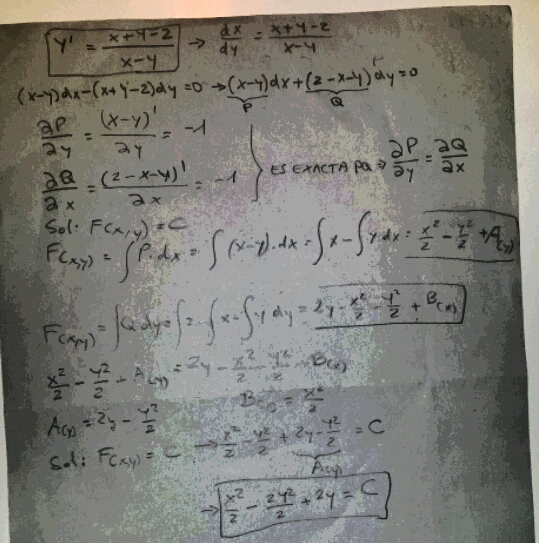 y' = x+y-2 / x-y → dx/dy = x+y-2 / x-y
(x-y)dx-(x+y-2)dy=0 → (x-y)dx+(2-x-y)dy=0
P Q
∂P/∂y = (x-y)'/∂y = -1
∂Q/∂x = (2-x-y)'/∂x = -1 } ES EXACTA PQ ⇒ ∂P/∂y = ∂Q/∂x
Sol: F(x,y) = C
F(x,y) = ∫P·dx = ∫(x-y)·dx = ∫x-∫y dx = x²/2 - y²/2 + A(y)
F(x,y) = ∫Q dy = ∫2-∫x-∫y dy = 2y - x²/2 - y²/2 + B(x)
x²/2 - y²/2 + A(y) = 2y - x²/2 - y²/2 B(x)
A(y) = 2y - y²/2 = x²/2
Sol: F(x,y) = C → x²/2 - y²/2 + 2y - y²/2 = C
A(y)
→ x²/2 - 2y²/2 + 2y = C